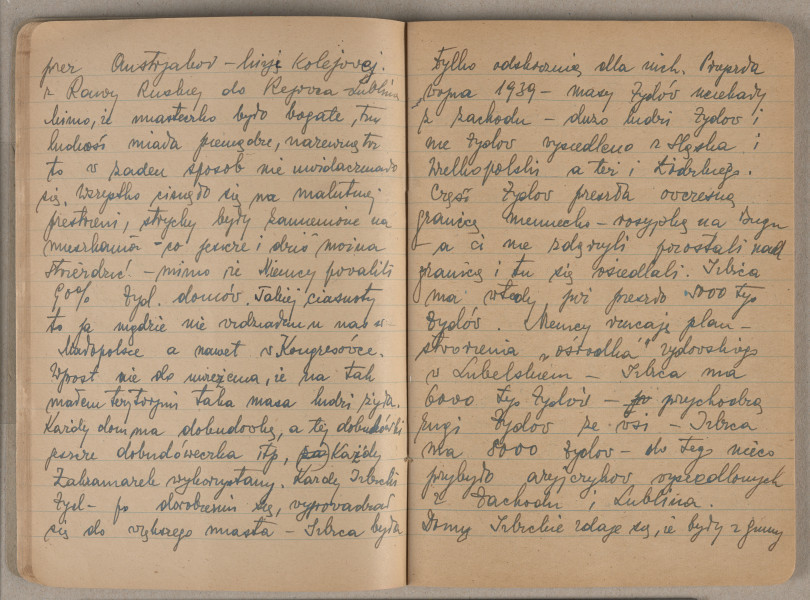 przez Austrjaków – linję Kolejowej.
z Rawy Ruskiej do Rejowca – Lublina
Mimo, iż miasteczko było bogate, tu
ludność miała pieniądze, nazewnątrz
to w żaden sposób nie uwidaczniało
się. Wszystko cisnęło się na malutkiej
przestrzeni, strychy były zamienione na
mieszkania – co jeszcze i dziś można
stwierdzić – mimo że Niemcy powalili
90% żyd. domów. Takiej ciasnoty
to ja nigdzie nie widziałem u nas w
Małopolsce a nawet w Kongresówce.
Wprost nie do uwierzenia, że na tak
małem terytorjum taka masa ludzi żyła.
Każdy dom ma dobudówkę, a tej dobudówki
jeszcze dobudóweczka itp, Każdy
Zakamarek wykorzystany. Każdy Izbicki
Żyd – po dorobieniu się, wyprowadzał
się do większego miasta – Izbica była
tylko odskocznią dla nich. Przyszła
wojna 1939 – masy żydów uciekały
z zachodu – dużo ludzi żydów i
nie żydów wysiedlono z Śląska i
Wielkopolski a też i Łódzkiego.
Część Żydów przeszła ówczesną
granicę niemiecko – rosyjską na Bugu
– a ci nie zdążyli pozostali nad
granicą i tu się osiedlali. Izbica
ma wtedy już przeszło 5000 tys
żydów. Niemcy rzucają plan –
stworzenia „ośrodka" żydowskiego
w Lubelskiem – Izbica ma
6000 tys żydów – przychodzą
Żydzi ze wsi – Izbica
ma 8000 żydów – do tego nieco
przybyło aryjczyków wysiedlonych
z Zachodu i Lublina.
Domy Izbickie zdaje się, że były z gminy